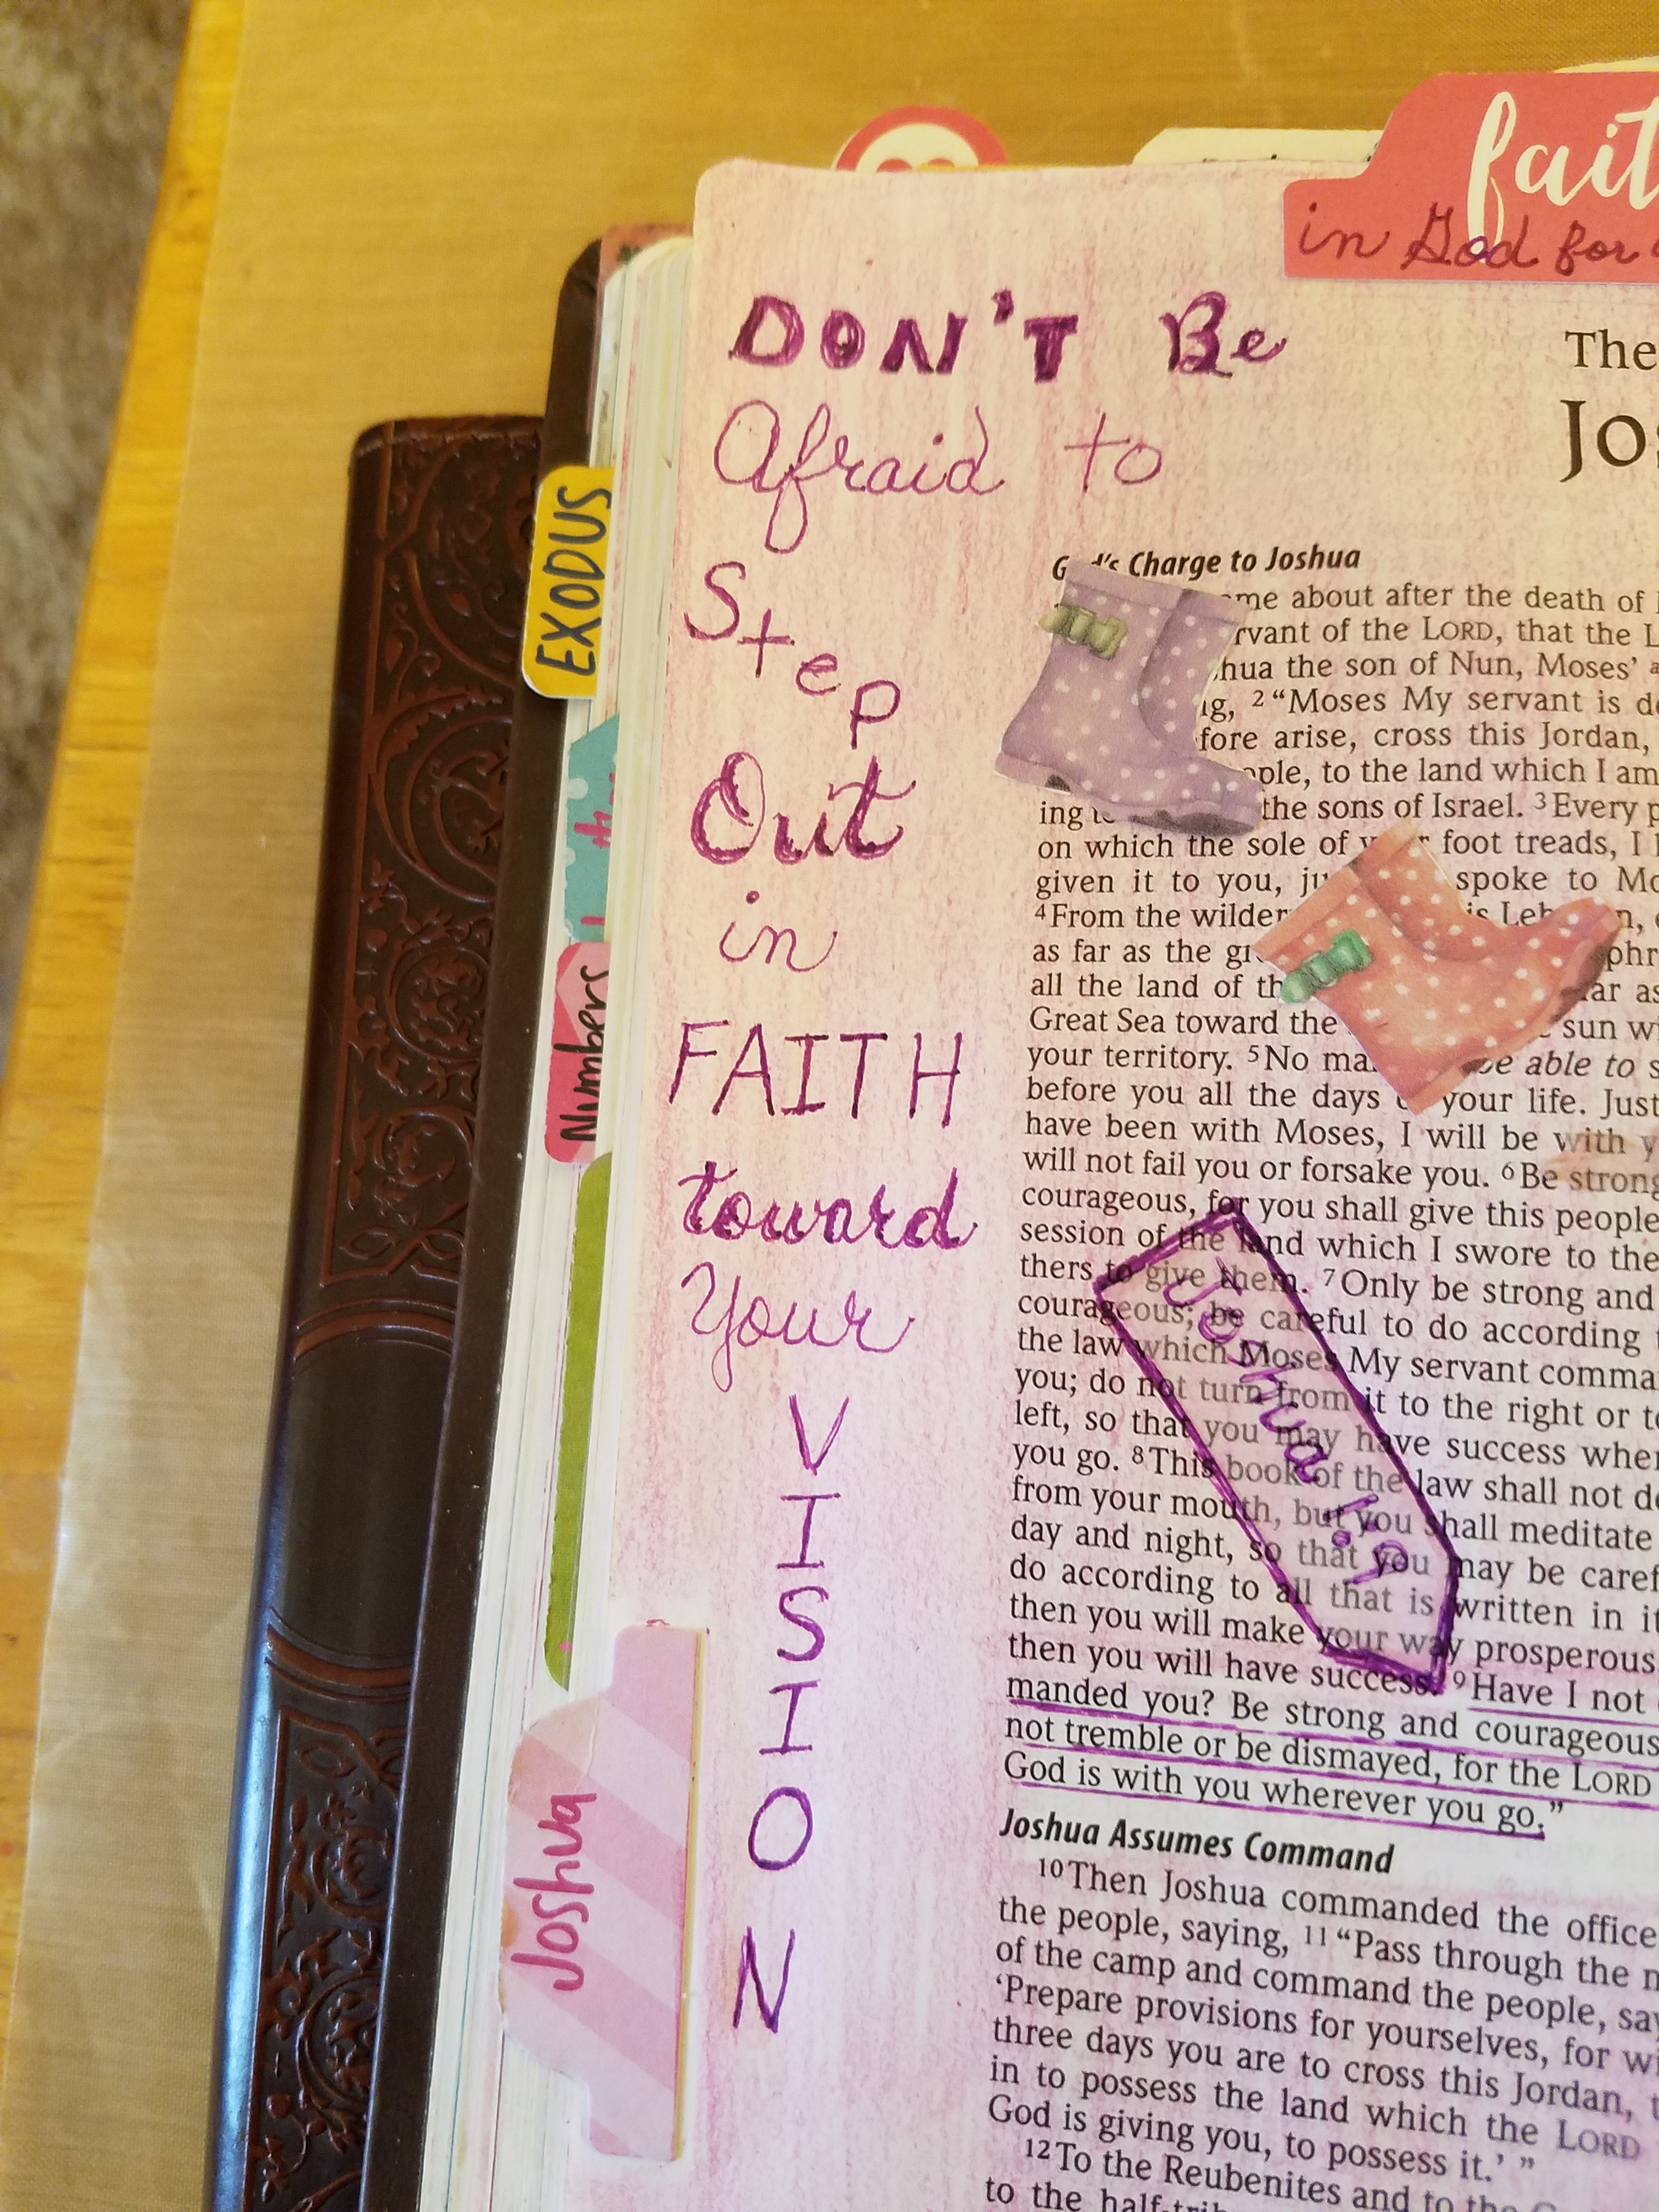 fait
in God for
DON'T Be
Afraid to
Step
Out
in
FAITH
toward
Your
VISION
EXODUS
Numbers
Joshua
The
Jos
God's Charge to Joshua
me about after the death of
rvant of the LORD, that the L
hua the son of Nun, Moses'
ng, 2 “Moses My servant is de
fore arise, cross this Jordan,
ople, to the land which I am
ing the sons of Israel. 3 Every p
on which the sole of your foot treads, I
given it to you, ju spoke to Mo
4 From the wilder is Leb n,
as far as the gr phr
all the land of th ar as
Great Sea toward the sun wi
your territory. 5 No ma be able to s
before you all the days your life. Just
have been with Moses, I will be with y
will not fail you or forsake you. 6 Be strong
courageous, for you shall give this people
session of the land which I swore to the
thers to give them. 7 Only be strong and
courageous; be careful to do according t
the law which Moses My servant comma
you; do not turn from it to the right or to
left, so that you may have success wher
you go. 8 This book of the law shall not de
from your mouth, but you shall meditate
day and night, so that you may be caref
do according to all that is written in it
then you will make your way prosperous
then you will have success. 9 Have I not
manded you? Be strong and courageous
not tremble or be dismayed, for the LORD
God is with you wherever you go.”
Joshua 1:9
Joshua Assumes Command
10 Then Joshua commanded the office
the people, saying, 11 “Pass through the m
of the camp and command the people, say
‘Prepare provisions for yourselves, for wi
three days you are to cross this Jordan, t
in to possess the land which the LORD
God is giving you, to possess it.’ ”
12 To the Reubenites and to the
to the half-tri